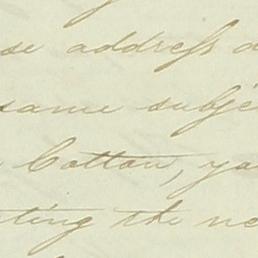 se address a
same subje
Cotton, yo
ting the ne